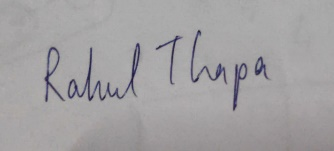 Rahul Thapa